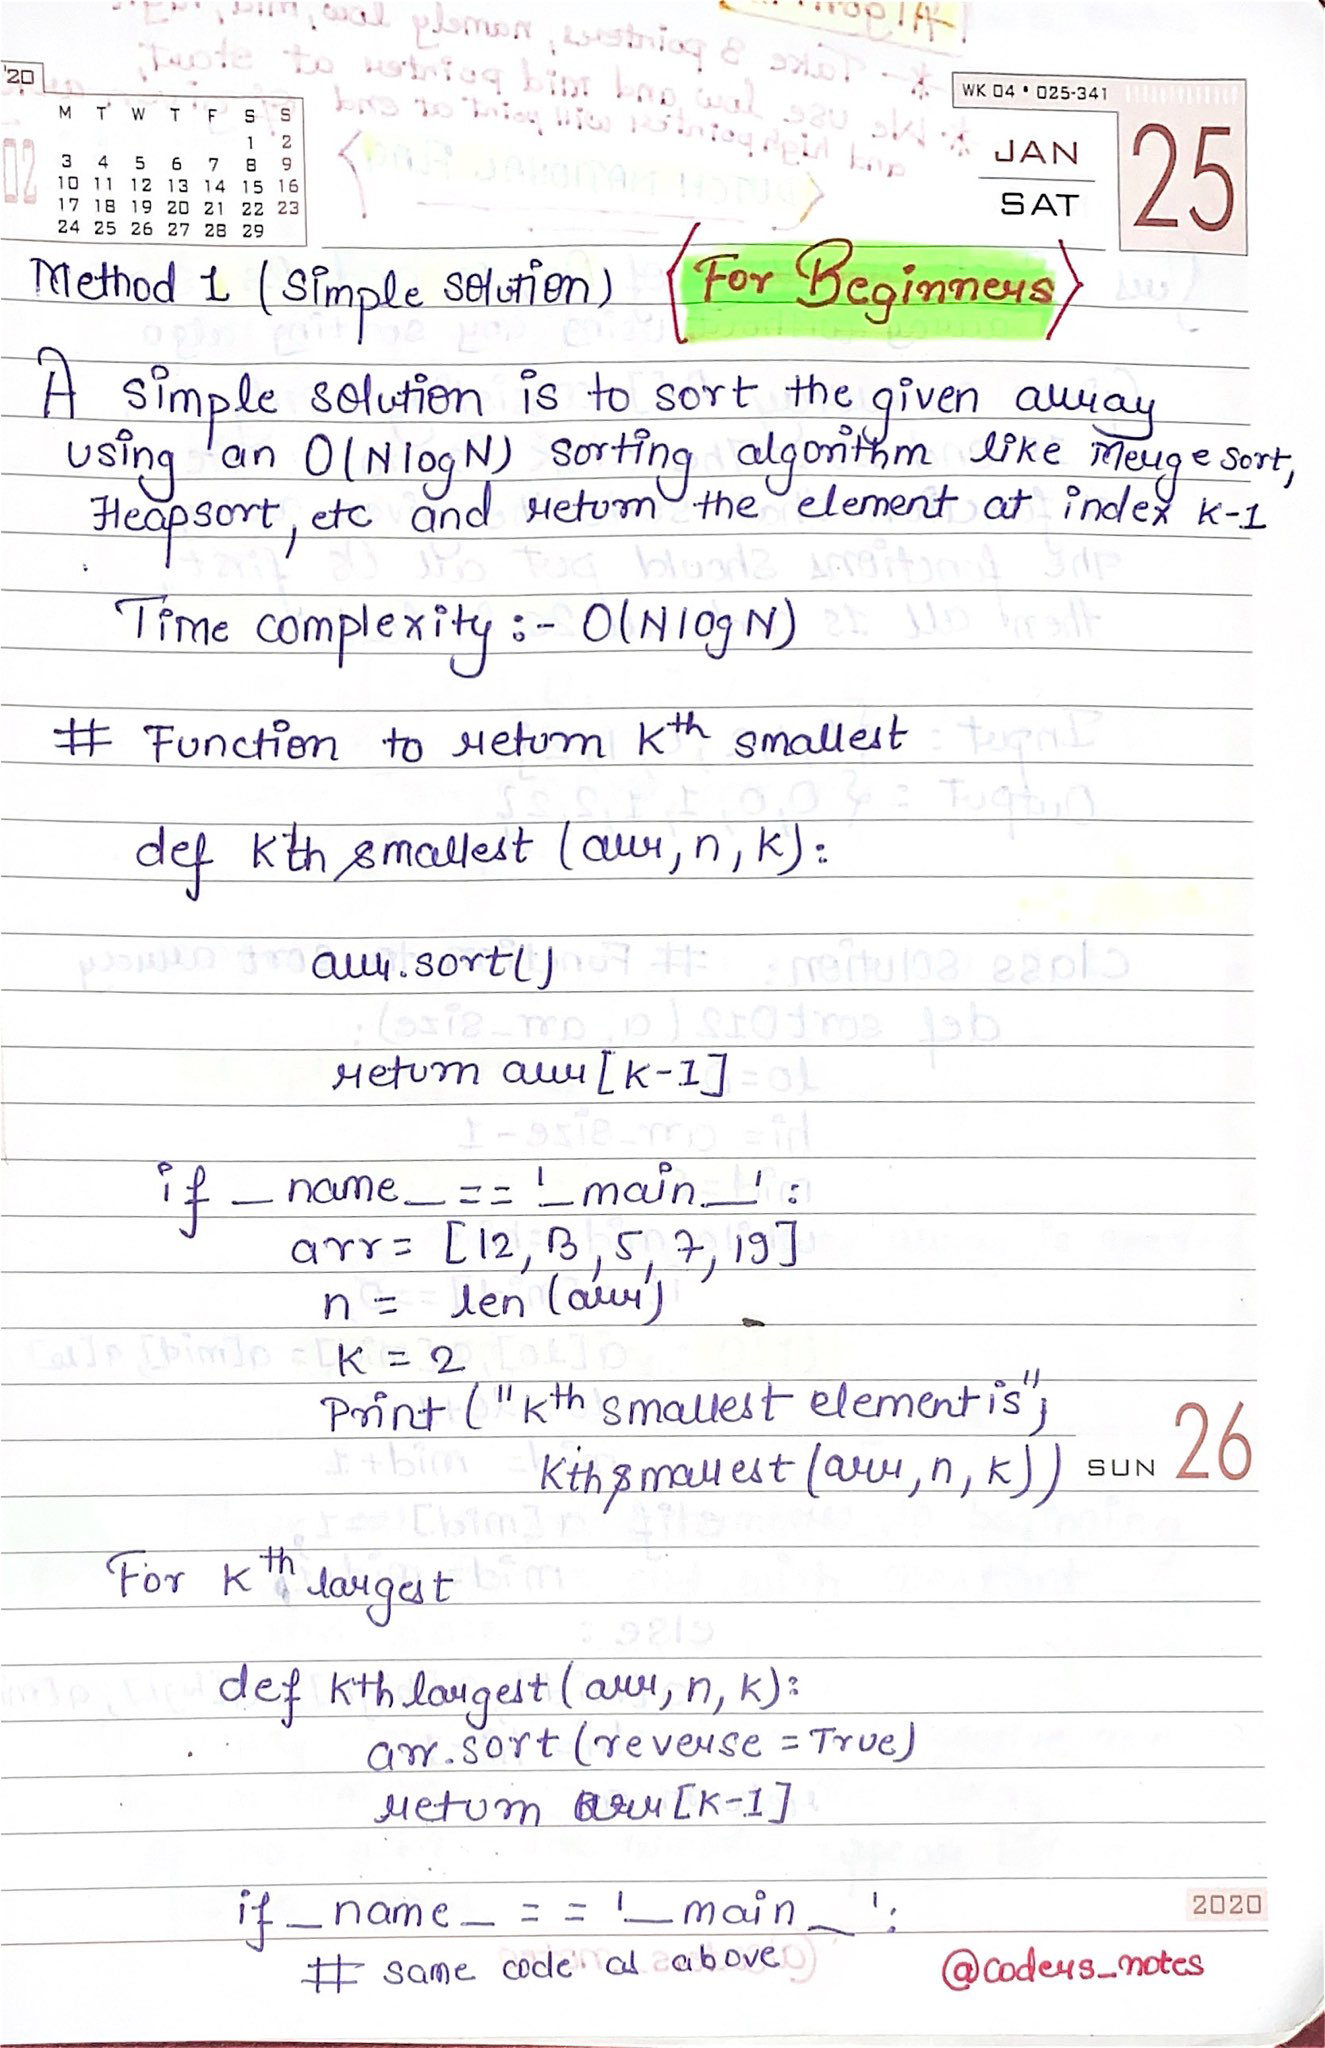 '20
WK 04 • 025-341
02
M T W T F S S
1 2
3 4 5 6 7 8 9
10 11 12 13 14 15 16
17 18 19 20 21 22 23
24 25 26 27 28 29
JAN
SAT
25
Method 1 (Simple solution) (For Beginners)
A simple solution is to sort the given array
using an O(NlogN) sorting algorithm like Merge sort,
Heapsort, etc and return the element at index k-1
Time complexity :- O(NlogN)
# Function to return kth smallest
def kthsmallest (arr, n, k):
arr.sort()
return arr[k-1]
if _name_ == '_main_':
arr = [12, 3, 5, 7, 19]
n = len (arr)
k = 2
Print ("kth smallest element is",
kthsmallest (arr, n, k))
SUN 26
For kth largest
def kthlargest (arr, n, k):
arr.sort (reverse = True)
return arr [k-1]
if _name_ == '_main_':
# same code as above
2020
@coders_notes